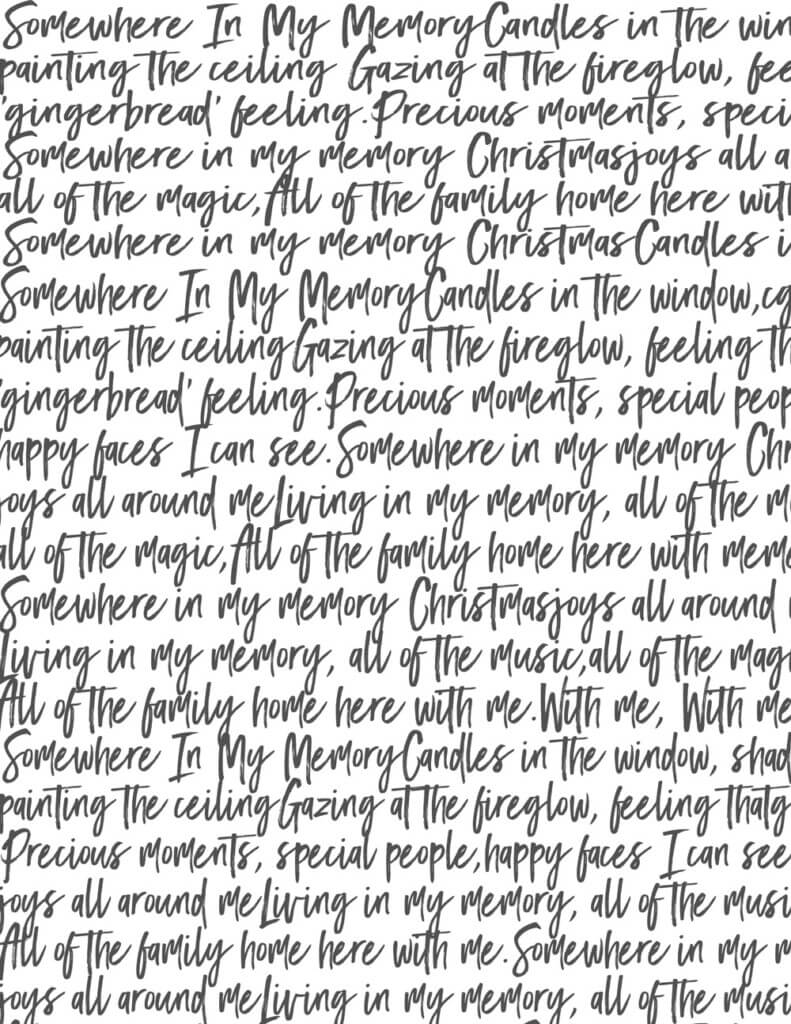 Somewhere In My MemoryCandles in the win
painting the ceiling Gazing at the fireglow, fee
'gingerbread' feeling.Precious moments, speci
Somewhere in my memory Christmasjoys all a
all of the magic,All of the family home here with
Somewhere in my memory ChristmasCandles i
Somewhere In My MemoryCandles in the window,cg
painting the ceilingGazing at the fireglow, feeling th
'gingerbread' feeling.Precious moments, special peop
happy faces I can see.Somewhere in my memory Chr
joys all around meLiving in my memory, all of the m
all of the magic,All of the family home here with mem
Somewhere in my memory Christmasjoys all around
Living in my memory, all of the music,all of the magi
All of the family home here with me.With me, With me
Somewhere In My MemoryCandles in the window, shad
painting the ceilingGazing at the fireglow, feeling thatg
Precious moments, special people,happy faces I can see
joys all around meLiving in my memory, all of the musi
All of the family home here with me.Somewhere in my m
joys all around meLiving in my memory, all of the musi